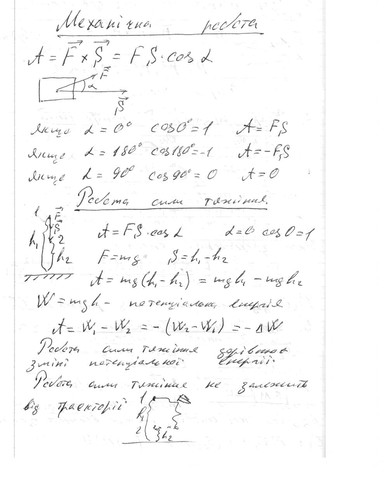 Механічна робота
A = F⃗ × S⃗ = F S · cos α
F⃗
α
S⃗
якщо α = 0° cos 0° = 1 A = FS
якщо α = 180° cos 180° = -1 A = -FS
якщо α = 90° cos 90° = 0 A = 0
Робота сили тяжіння
1
F⃗
S⃗
2
h₁
h₂
A = FS · cos α α = 0 cos 0 = 1
F = mg S = h₁ - h₂
A = mg(h₁ - h₂) = mgh₁ - mgh₂
W = mgh - потенціальна енергія
A = W₁ - W₂ = -(W₂ - W₁) = -ΔW
Робота сили тяжіння дорівнює
зміні потенціальної енергії.
Робота сили тяжіння не залежить
від траєкторії
1
h₁
2
h₂